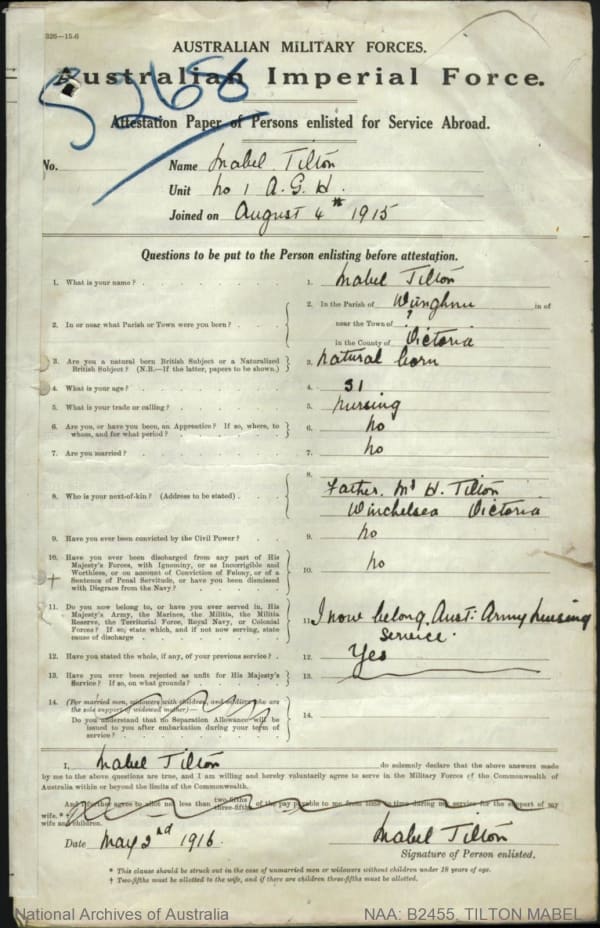 326—15.6
AUSTRALIAN MILITARY FORCES.
Australian Imperial Force.
Attestation Paper of Persons enlisted for Service Abroad.
No. Name Mabel Tilton
Unit No 1 A.G.H.
Joined on August 4th 1915
Questions to be put to the Person enlisting before attestation.
1. What is your name? 1. Mabel Tilton
2. In or near what Parish or Town were you born? 2. In the Parish of Wunghnu in or
near the Town of ?
in the County of Victoria
3. Are you a natural born British Subject or a Naturalized British Subject? (N.B.—If the latter, papers to be shown.) 3. natural born
4. What is your age? 4. 31
5. What is your trade or calling? 5. nursing
6. Are you, or have you been, an Apprentice? If so, where, to whom, and for what period? 6. no
7. Are you married? 7. no
8. Who is your next-of-kin? (Address to be stated) 8. Father. Mr H. Tilton
Winchelsea Victoria
9. Have you ever been convicted by the Civil Power? 9. no
10. Have you ever been discharged from any part of His Majesty's Forces, with Ignominy, or as Incorrigible and Worthless, or on account of Conviction of Felony, or of a Sentence of Penal Servitude, or have you been dismissed with Disgrace from the Navy? 10. no
11. Do you now belong to, or have you ever served in, His Majesty's Army, the Marines, the Militia, the Militia Reserve, the Territorial Force, Royal Navy, or Colonial Forces? If so, state which, and if not now serving, state cause of discharge 11. I now belong. Aust: Army Nursing
Service.
12. Have you stated the whole, if any, of your previous service? 12. Yes
13. Have you ever been rejected as unfit for His Majesty's Service? If so, on what grounds? 13.
14. (For married men, widowers with children, and soldiers who are the sole support of widowed mother)—
Do you understand that no Separation Allowance will be issued to you after embarkation during your term of service? 14.
I, Mabel Tilton do solemnly declare that the above answers made
by me to the above questions are true, and I am willing and hereby voluntarily agree to serve in the Military Forces of the Commonwealth of
Australia within or beyond the limits of the Commonwealth.
And I further agree to allot not less than two-fifths three-fifths of the pay payable to me from time to time during my service for the support of my
wife.*
wife and children.
Date May 2nd 1916 Mabel Tilton
Signature of Person enlisted.
* This clause should be struck out in the case of unmarried men or widowers without children under 18 years of age.
† Two-fifths must be allotted to the wife, and if there are children three-fifths must be allotted.
National Archives of Australia NAA: B2455, TILTON MABEL